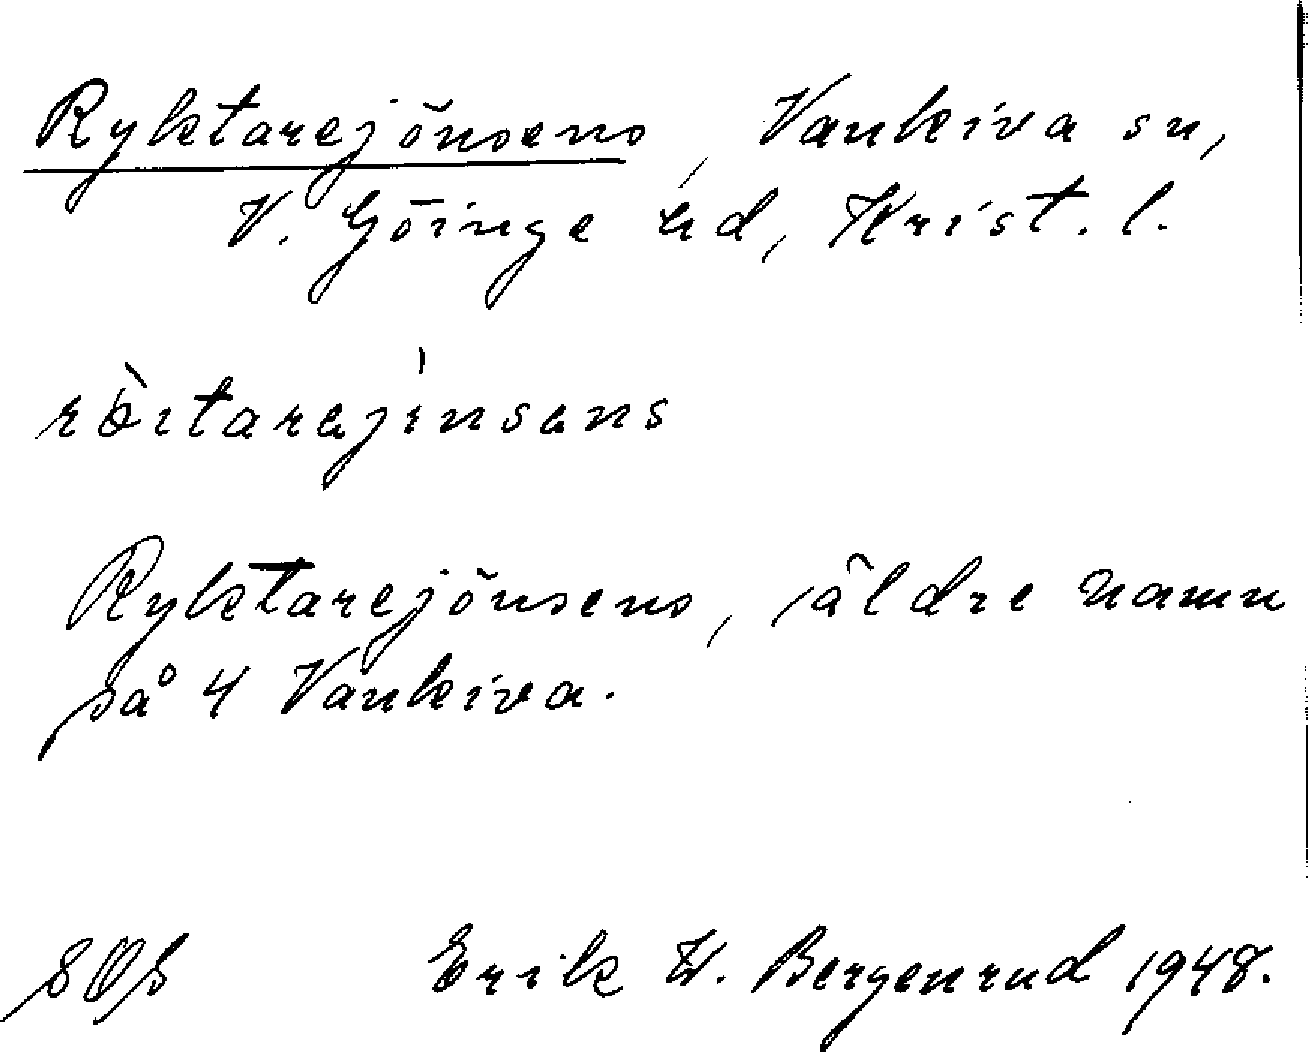 Ryktarejönsens, Vankiva sn,
V. Göinge hd, Krist. l.
rö̀ıtarejı̍nsens
Ryktarejönsens, äldre namn
på 4 Vankiva.
Erik W. Bergenrud 1948.